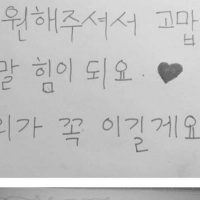 원해주셔서 고맙
말 힘이 되요. ♥
리가 꼭 이길게요